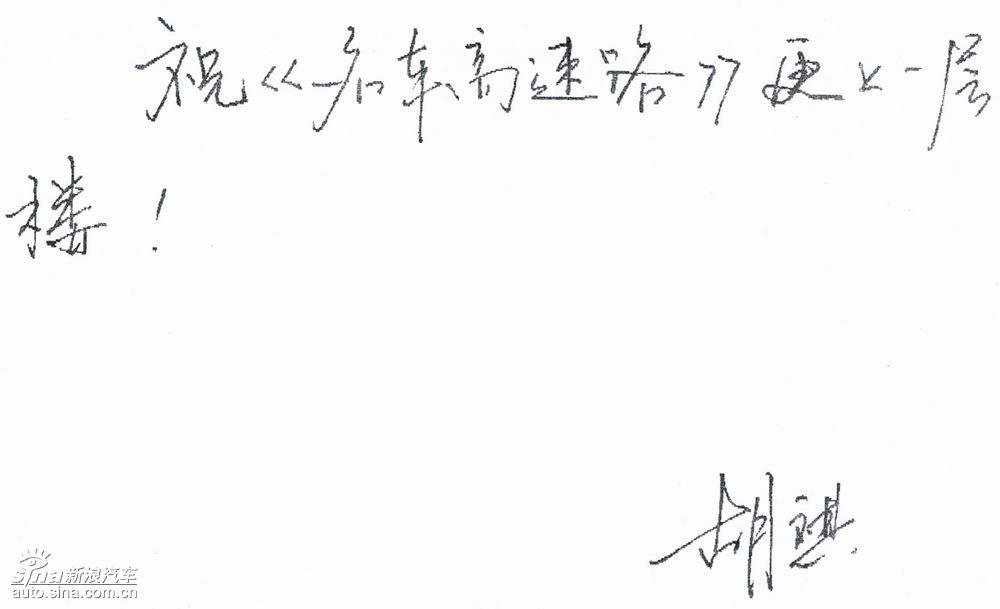 祝《名车高速路》更上一层
楼！
胡祺
sina新浪汽车
auto.sina.com.cn